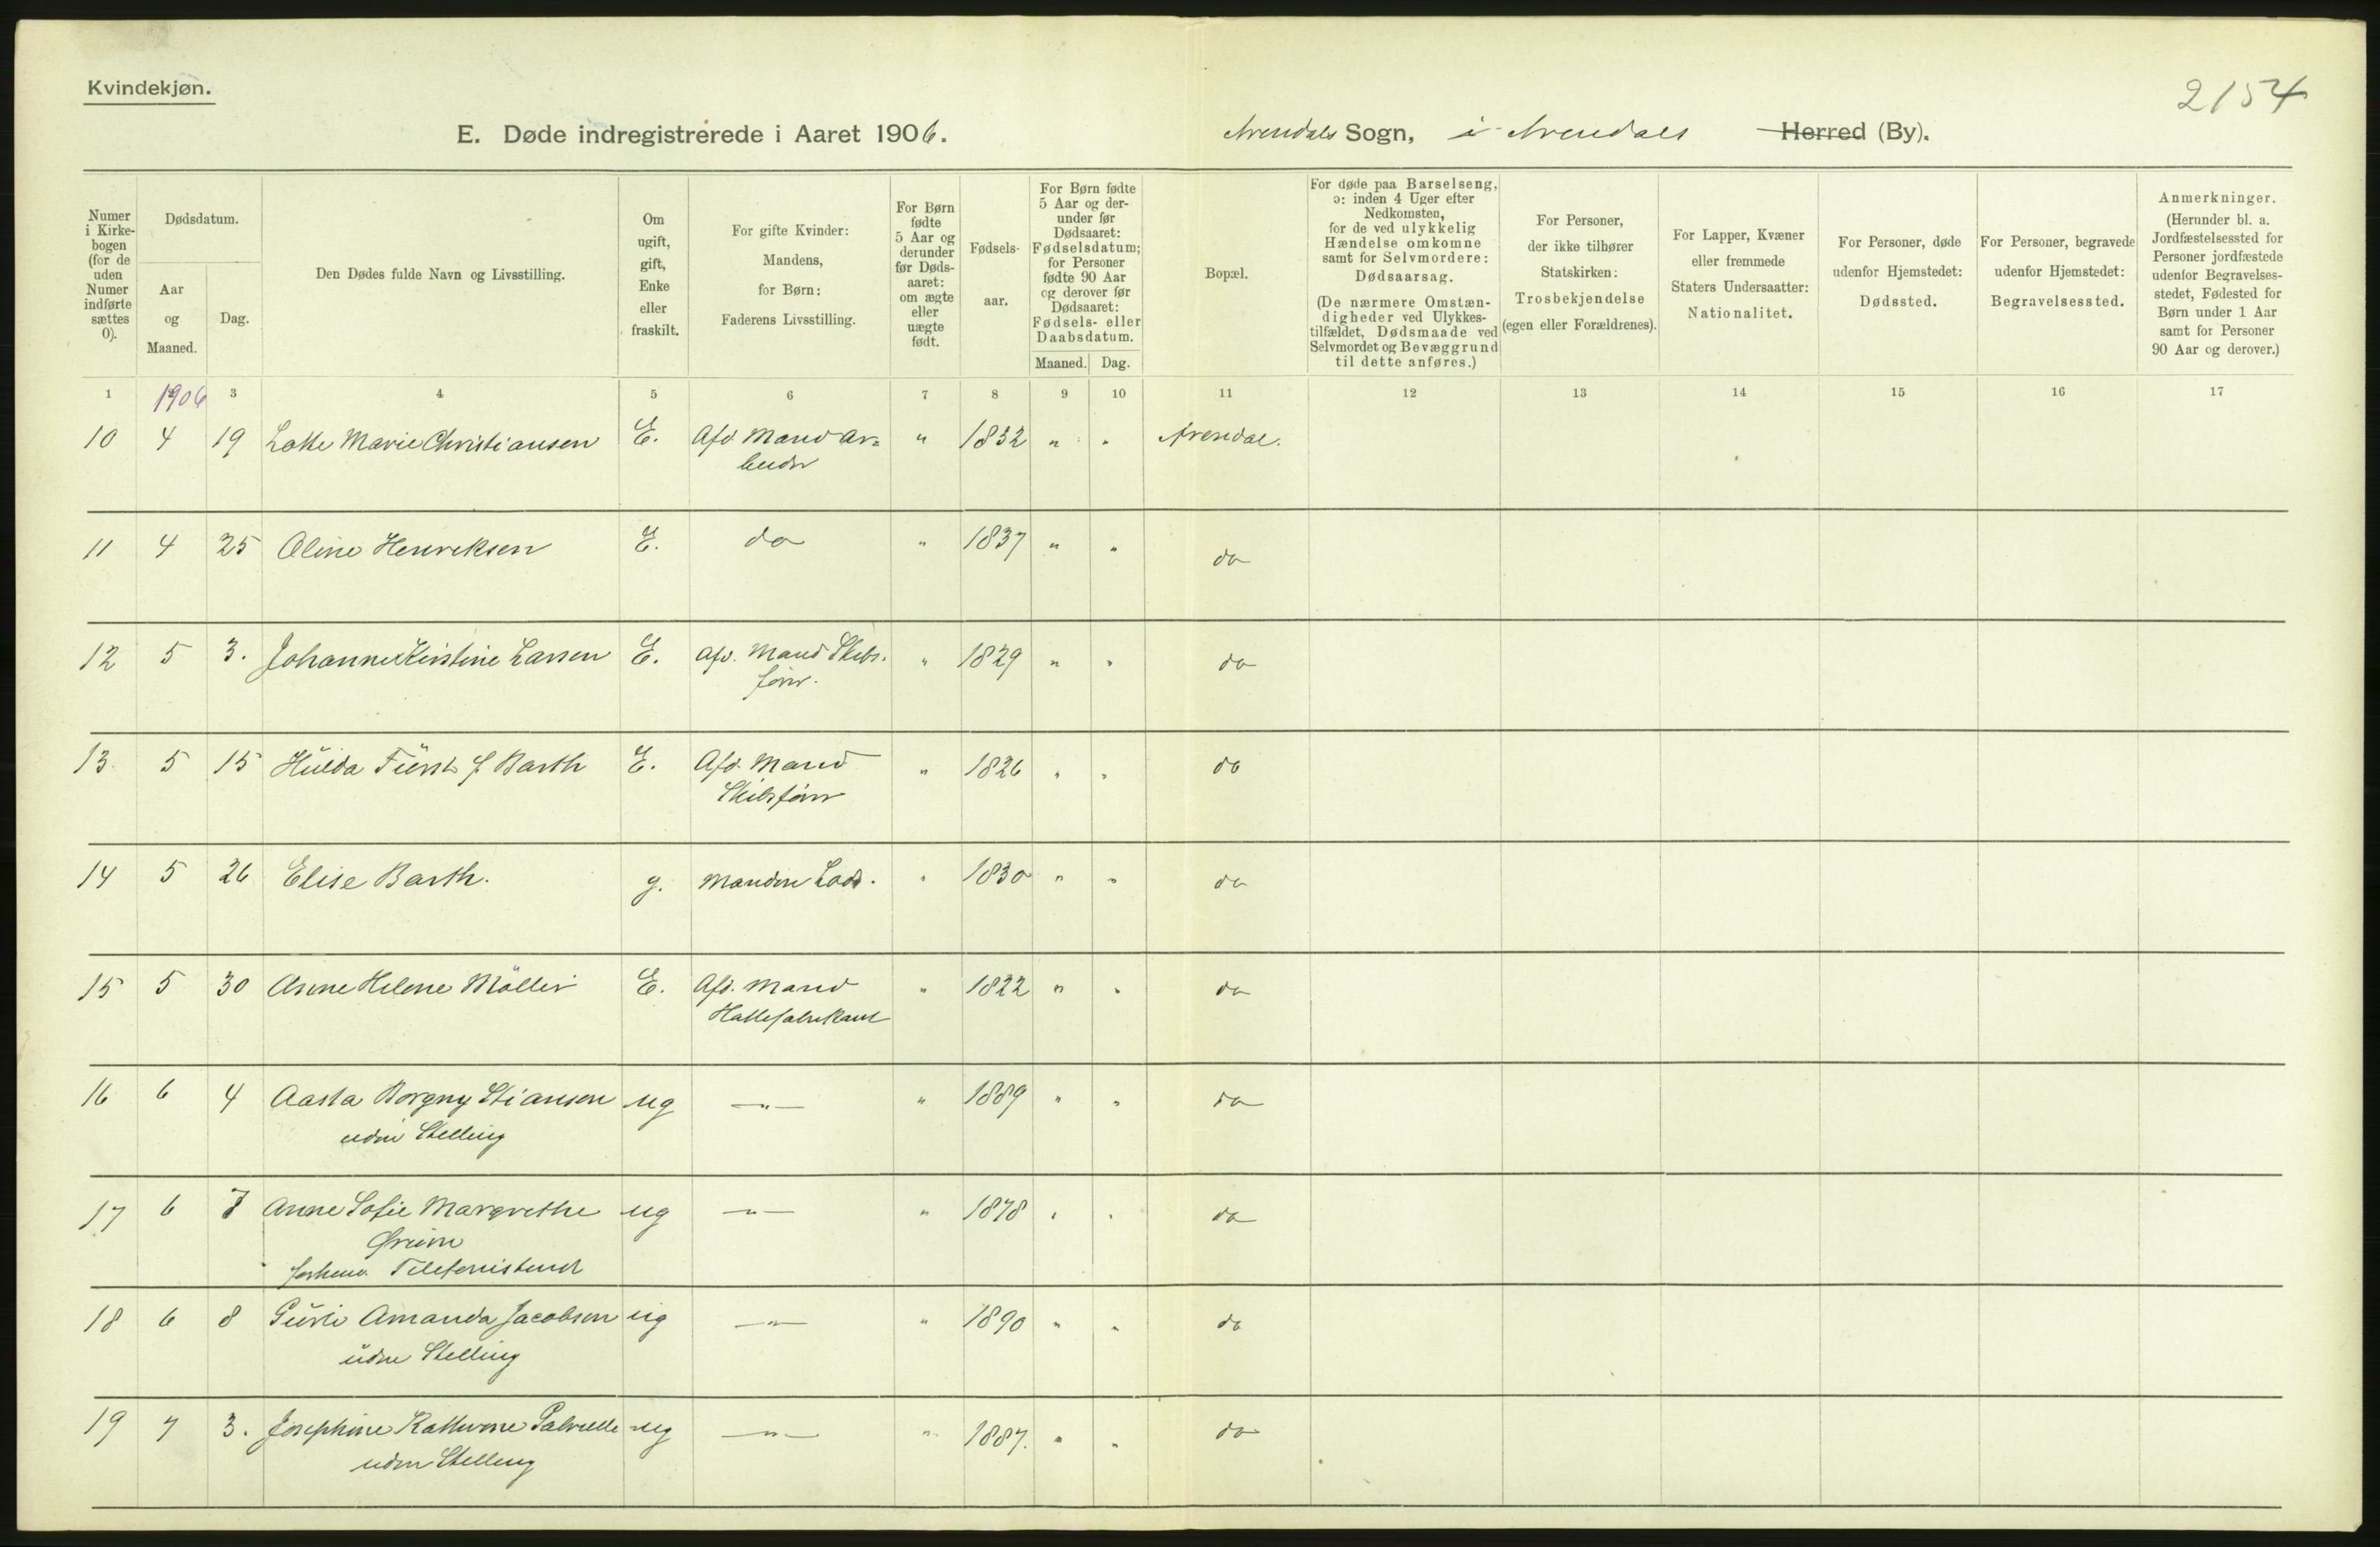 Kvindekjøn.
2154
E. Døde indregistrerede i Aaret 1906.
Arendals Sogn, i Arendals Herred (By).
Numer i Kirkebogen (for de uden Numer indførte sættes 0).
Dødsdatum.
Aar og Maaned.
Dag.
Den Dødes fulde Navn og Livsstilling.
Om ugift, gift, Enke eller fraskilt.
For gifte Kvinder: Mandens, for Børn: Faderens Livsstilling.
For Børn fødte 5 Aar og derunder før Dødsaaret: om ægte eller uægte født.
Fødselsaar.
For Børn fødte 5 Aar og derunder før Dødsaaret: Fødselsdatum; for Personer fødte 90 Aar og derover før Dødsaaret: Fødsels- eller Daabsdatum.
Maaned. Dag.
Bopæl.
For døde paa Barselseng, ɔ: inden 4 Uger efter Nedkomsten, for de ved ulykkelig Hændelse omkomne samt for Selvmordere: Dødsaarsag.
(De nærmere Omstændigheder ved Ulykkestilfældet, Dødsmaade ved Selvmordet og Bevæggrund til dette anføres.)
For Personer, der ikke tilhører Statskirken: Trosbekjendelse (egen eller Forældrenes).
For Lapper, Kvæner eller fremmede Staters Undersaatter: Nationalitet.
For Personer, døde udenfor Hjemstedet: Dødssted.
For Personer, begravede udenfor Hjemstedet: Begravelsessted.
Anmerkninger.
(Herunder bl. a. Jordfæstelsessted for Personer jordfæstede udenfor Begravelsesstedet, Fødested for Børn under 1 Aar samt for Personer 90 Aar og derover.)
1 1906 3 4 5 6 7 8 9 10 11 12 13 14 15 16 17
10 4 19 Lotte Marie Christiansen E. Afd Mand Ar= " 1832 " " Arendal.
beider
11 4 25 Oline Henriksen E. do " 1837 " " do
12 5 3. Johanne Kirstine Larsen E. Afd. Mand Skibs. " 1829 " " do
fører.
13 5 15 Hulda Fürst f Barth E. Afd. Mand " 1826 " " do
Skibsfører
14 5 26 Elise Barth. g. Manden Lods. " 1830 " " do
15 5 30 Anne Helene Möller E. Afd. Mand " 1822 " " do
Hattefabrikant
16 6 4 Aasta Borgny Stiansen ug —"— " 1889 " " do
uden Stilling
17 6 7 Anne Sofie Margrethe ug —"— " 1878 " " do
Telefonistinde
18 6 8 Guri Amanda Jacobsen ug —"— " 1890 " " do
uden Stilling
19 7 3. Josephine Kathrine ug —"— " 1887. " " do
uden Stilling